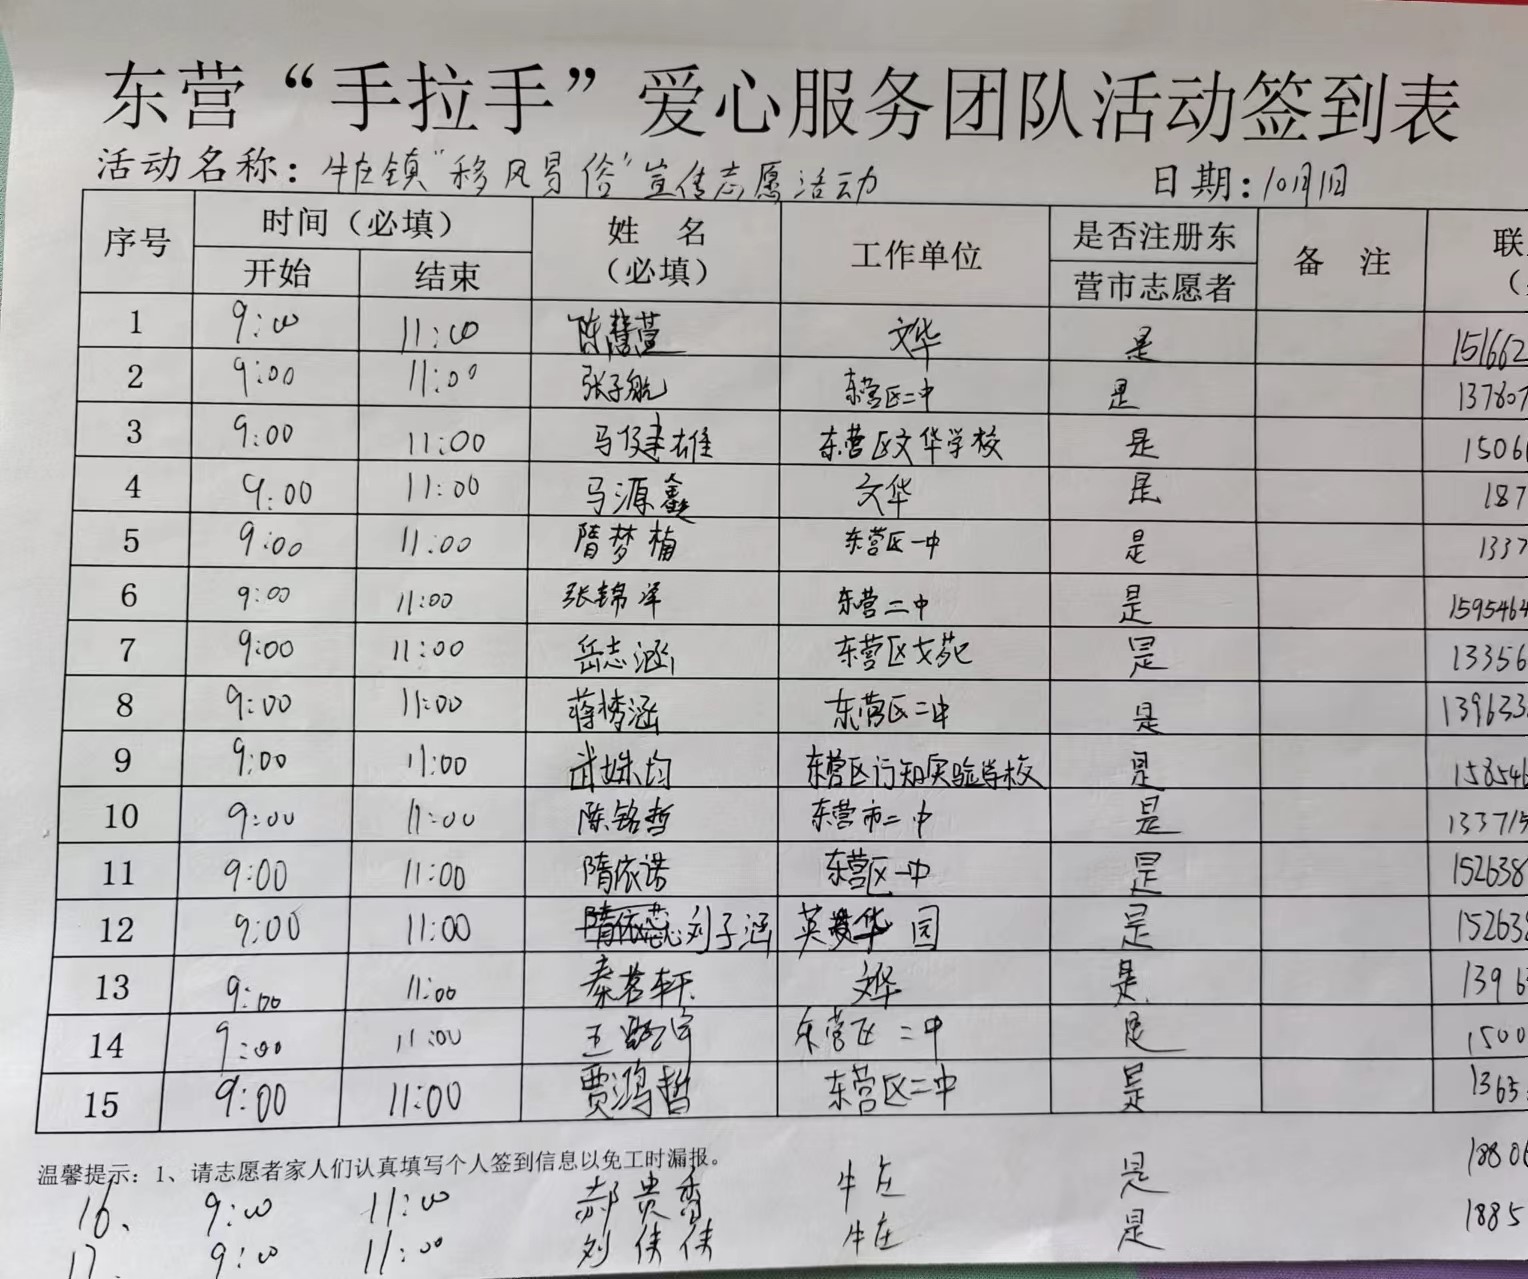 东营“手拉手”爱心服务团队活动签到表
活动名称：牛庄镇“移风易俗”宣传志愿活动 日期：10月1日
序号 时间（必填） 姓 名（必填） 工作单位 是否注册东营市志愿者 备 注 联
开始 结束
1 9:00 11:00 陈慧萱 文华 是 151662
2 9:00 11:00 张子航 东营区二中 是 137807
3 9:00 11:00 马健雄 东营区文华学校 是 1506
4 9:00 11:00 马源鑫 文华 是 187
5 9:00 11:00 隋梦楠 东营区一中 是 1337
6 9:00 11:00 张锦泽 东营二中 是 1595464
7 9:00 11:00 岳志涵 东营区文苑 是 13356
8 9:00 11:00 蒋梦涵 东营区二中 是 139633
9 9:00 11:00 武姝均 东营区行知实验学校 是 158546
10 9:00 11:00 陈铭哲 东营市二中 是 133715
11 9:00 11:00 隋依诺 东营区一中 是 152638
12 9:00 11:00 刘子涵 英 华园 是 152638
13 9:00 11:00 秦茗轩 文华 是 1396
14 9:00 11:00 王 宇 东营区二中 是 1500
15 9:00 11:00 贾鸿哲 东营区二中 是 1365
温馨提示：1、请志愿者家人们认真填写个人签到信息以免工时漏报。
16、 9:00 11:00 郝贵香 牛庄 是 18806
17、 9:00 11:00 刘侠侠 牛庄 是 1885